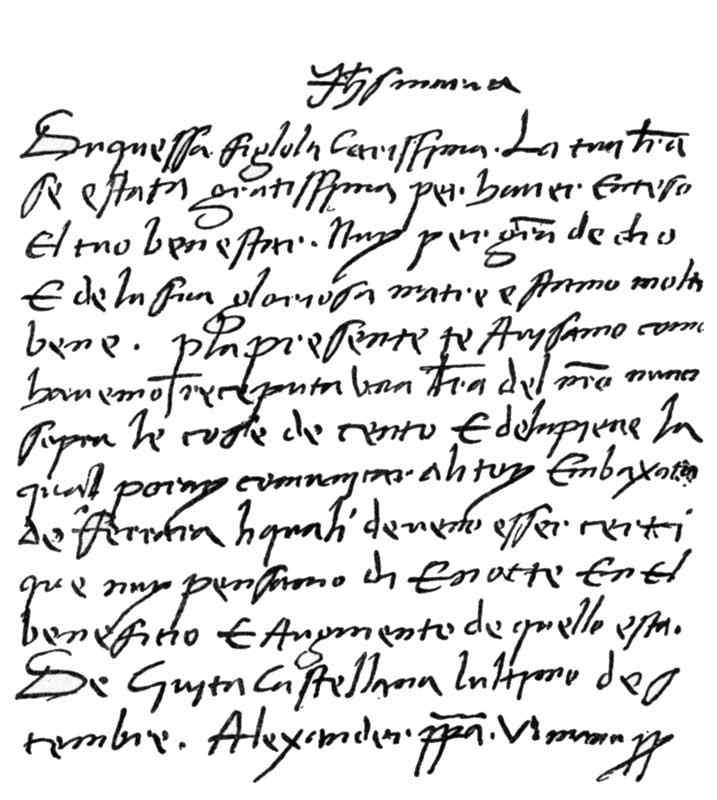 Jhs maria
Duquessa figlola Carissima. La tua lra
se estata gratissima per haver Enteso
El tuo ben estar. Nuy per gra de dio
E de la sua gloriosa matre estamo molto
bene. p la presente te Avisamo como
havemo receputa una lra del nro nuncio
sopra le cose de cento E dela pieve la
qual poray comunicar ali toy Embaxatori
de ferrara li quali deveno esser certi
que nuy pensamo di E notte En El
beneficio E Augmento de quello esta.
De Civita Castellana lultimo de s
tembre. Alexander. ppa. VI manu pp